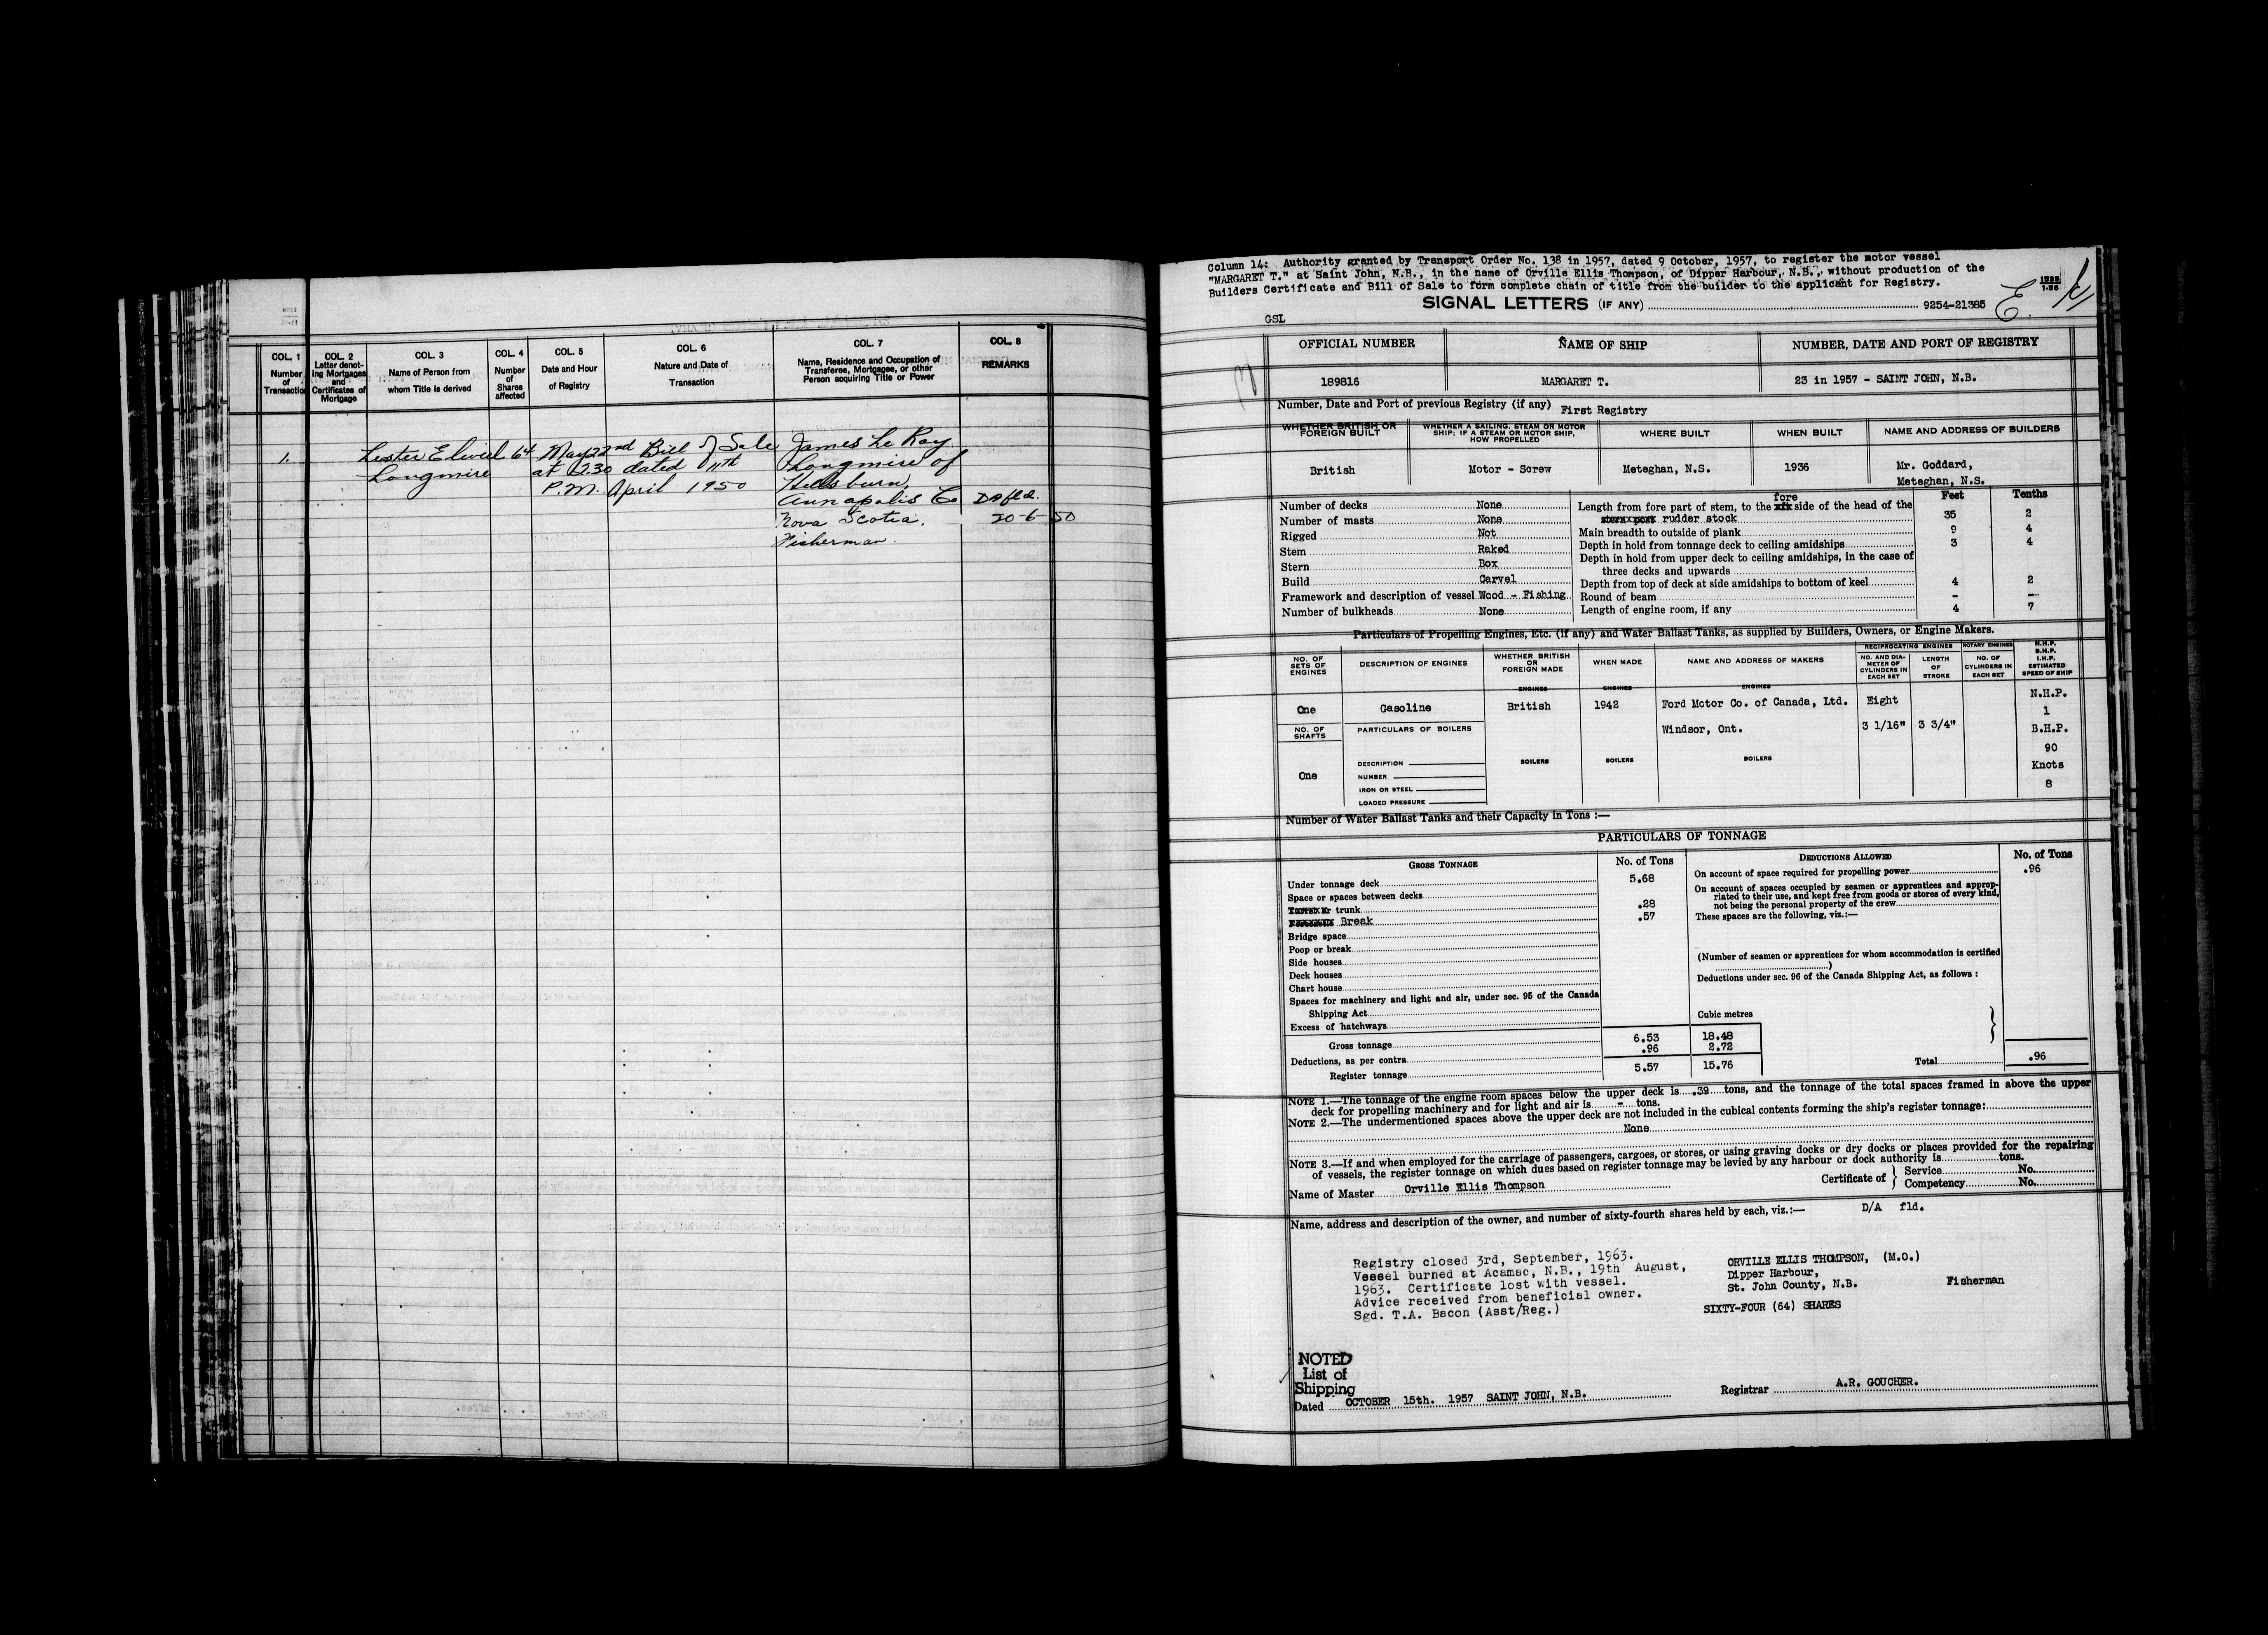 COL. 1
Number
of
Transaction
COL. 2
Letter denot-
ing Mortgages
and
Certificates of
Mortgage
COL. 3
Name of Person from
whom Title is derived
COL. 4
Number
of
Shares
affected
COL. 5
Date and Hour
of Registry
COL. 6
Nature and Date of
Transaction
COL. 7
Name, Residence and Occupation of
Transferee, Mortgagee, or other
Person acquiring Title or Power
COL. 8
REMARKS
1. Lester 64 May 22nd Bill of Sale James Le Roy
Longmire at 2.30 dated 11th Longmire of
P.M. April 1950 Hillsburn,
Annapolis Co. D A fld.
Nova Scotia. 20-6-50
Fisherman.
Column 14: Authority granted by Transport Order No. 138 in 1957, dated 9 October, 1957, to register the motor vessel
"MARGARET T." at Saint John, N.B., in the name of Orville Ellis Thompson, of Dipper Harbour, N.B., without production of the
Builders Certificate and Bill of Sale to form complete chain of title from the builder to the applicant for Registry.
SIGNAL LETTERS (IF ANY) 9254-21385
GSL
OFFICIAL NUMBER NAME OF SHIP NUMBER, DATE AND PORT OF REGISTRY
189816 MARGARET T. 23 in 1957 - SAINT JOHN, N.B.
Number, Date and Port of previous Registry (if any) First Registry
WHETHER BRITISH OR
FOREIGN BUILT
WHETHER A SAILING, STEAM OR MOTOR
SHIP; IF A STEAM OR MOTOR SHIP,
HOW PROPELLED
WHERE BUILT WHEN BUILT NAME AND ADDRESS OF BUILDERS
British Motor - Screw Meteghan, N.S. 1936 Mr. Goddard,
Meteghan, N.S.
Number of decks None
Number of masts None
Rigged Not
Stem Raked
Stern Box
Build Carvel
Framework and description of vessel Wood - Fishing
Number of bulkheads None
Feet Tenths
fore
Length from fore part of stem, to the aft side of the head of the
stern post rudder stock 35 2
Main breadth to outside of plank 9 4
Depth in hold from tonnage deck to ceiling amidships 3 4
Depth in hold from upper deck to ceiling amidships, in the case of
three decks and upwards
Depth from top of deck at side amidships to bottom of keel 4 2
Round of beam - -
Length of engine room, if any 4 7
Particulars of Propelling Engines, Etc. (if any) and Water Ballast Tanks, as supplied by Builders, Owners, or Engine Makers.
NO. OF
SETS OF
ENGINES
DESCRIPTION OF ENGINES
WHETHER BRITISH
OR
FOREIGN MADE
WHEN MADE
NAME AND ADDRESS OF MAKERS
RECIPROCATING ENGINES ROTARY ENGINES
NO. AND DIA-
METER OF
CYLINDERS IN
EACH SET
LENGTH
OF
STROKE
NO. OF
CYLINDERS IN
EACH SET
N.H.P.
B.H.P.
I.H.P.
ESTIMATED
SPEED OF SHIP
ENGINES ENGINES ENGINES
One Gasoline British 1942 Ford Motor Co. of Canada, Ltd. Eight N.H.P.
1
NO. OF
SHAFTS
PARTICULARS OF BOILERS Windsor, Ont. 3 1/16" 3 3/4" B.H.P.
90
BOILERS BOILERS BOILERS
DESCRIPTION Knots
One NUMBER
IRON OR STEEL 8
LOADED PRESSURE
Number of Water Ballast Tanks and their Capacity in Tons :—
PARTICULARS OF TONNAGE
GROSS TONNAGE No. of Tons
Under tonnage deck 5.68
Space or spaces between decks
trunk .28
Break .57
Bridge space
Poop or break
Side houses
Deck houses
Chart house
Spaces for machinery and light and air, under sec. 95 of the Canada
Shipping Act
Excess of hatchways
Cubic metres
Gross tonnage 6.53 18.48
Deductions, as per contra .96 2.72
Register tonnage 5.57 15.76
DEDUCTIONS ALLOWED No. of Tons
On account of space required for propelling power .96
On account of spaces occupied by seamen or apprentices and approp-
riated to their use, and kept free from goods or stores of every kind,
not being the personal property of the crew
These spaces are the following, viz.:—
(Number of seamen or apprentices for whom accommodation is certified
)
Deductions under sec. 96 of the Canada Shipping Act, as follows :
Total .96
NOTE 1.—The tonnage of the engine room spaces below the upper deck is .39 tons, and the tonnage of the total spaces framed in above the upper
deck for propelling machinery and for light and air is - tons.
NOTE 2.—The undermentioned spaces above the upper deck are not included in the cubical contents forming the ship's register tonnage:
None
NOTE 3.—If and when employed for the carriage of passengers, cargoes, or stores, or using graving docks or dry docks or places provided for the repairing
of vessels, the register tonnage on which dues based on register tonnage may be levied by any harbour or dock authority is tons.
Name of Master Orville Ellis Thompson Certificate of { Service No.
Competency No.
Name, address and description of the owner, and number of sixty-fourth shares held by each, viz.:— D/A fld.
Registry closed 3rd, September, 1963.
Vessel burned at Acamac, N.B., 19th August,
1963. Certificate lost with vessel.
Advice received from beneficial owner.
Sgd. T.A. Bacon (Asst/Reg.)
ORVILLE ELLIS THOMPSON, (M.O.)
Dipper Harbour,
St. John County, N.B. Fisherman
SIXTY-FOUR (64) SHARES
NOTED
List of
Shipping
Dated OCTOBER 15th. 1957 SAINT JOHN, N.B. Registrar A.R. GOUCHER.